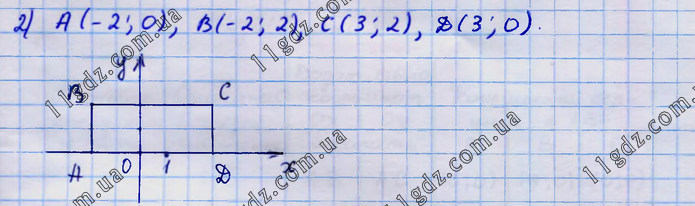 2) A(-2; 0), B(-2; 2), C(3; 2), D(3; 0).
y
B C
A 0 1 D x
11gdz.com.ua
11gdz.com.ua
11gdz.com.ua
11gdz.com.ua
11gdz.com.ua